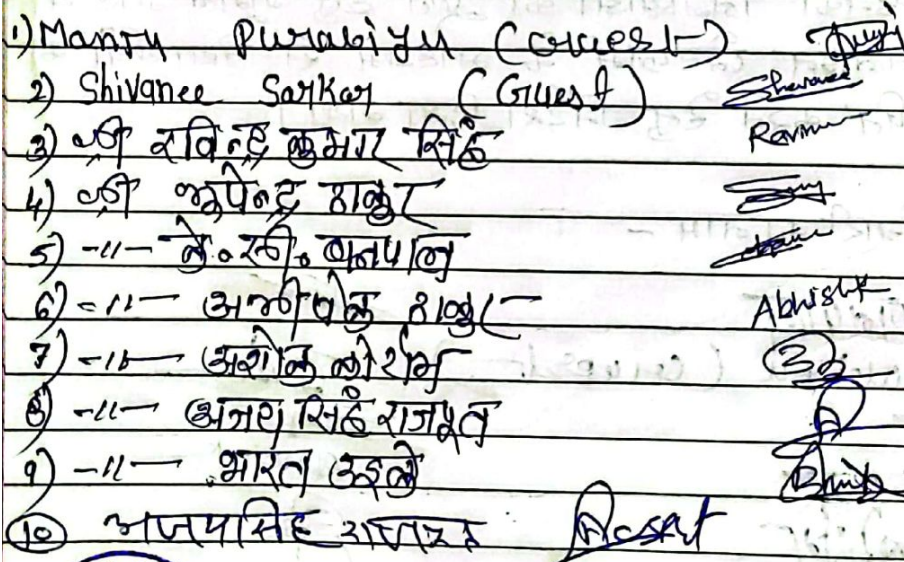 1) Manju Purabiya (Guest)
2) Shivanee Sarkar (Guest) Shivanee
3) श्री रविन्द्र कुमार सिंह Ravin
4) श्री भूपेन्द्र ठाकुर
5) -11- के. स्टी. वनपाल
6) -11- अभीषेक ठाकुर Abhishek
7) -11- अशोक कोराम
8) -11- अजय सिंह राजपूत
9) -11- भारत उइके
10 अजयसिंह राजपूत